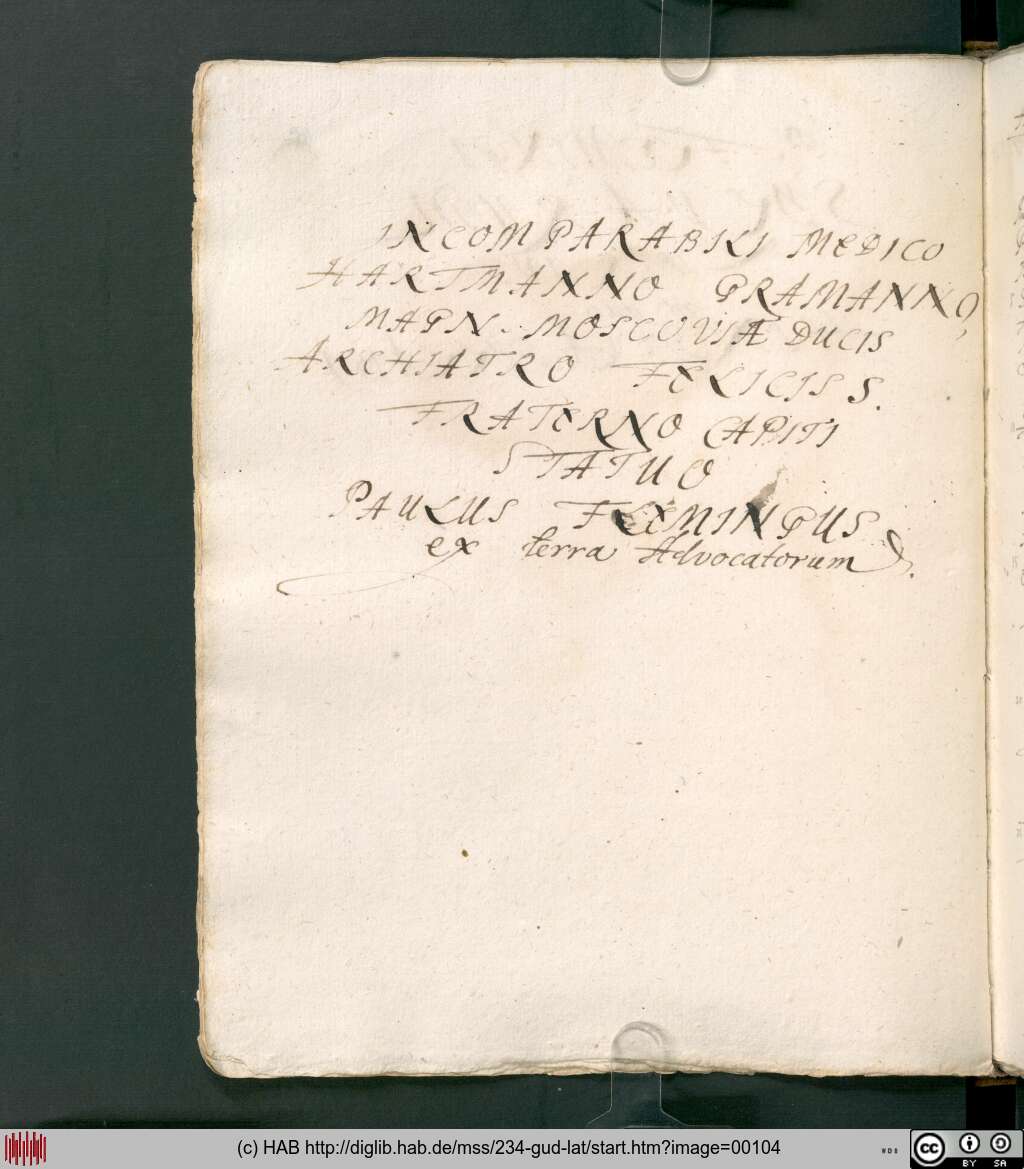 INCOMPARABILI MEDICO
HARTMANNO GRAMANNO,
MAGN. MOSCOVIÆ DUCIS
ARCHIATRO FELICISS.
FRATERNO CAPITI
STATUO
PAULUS FLEMINGUS
ex terra Advocatorum.
(c) HAB http://diglib.hab.de/mss/234-gud-lat/start.htm?image=00104
cc BY SA